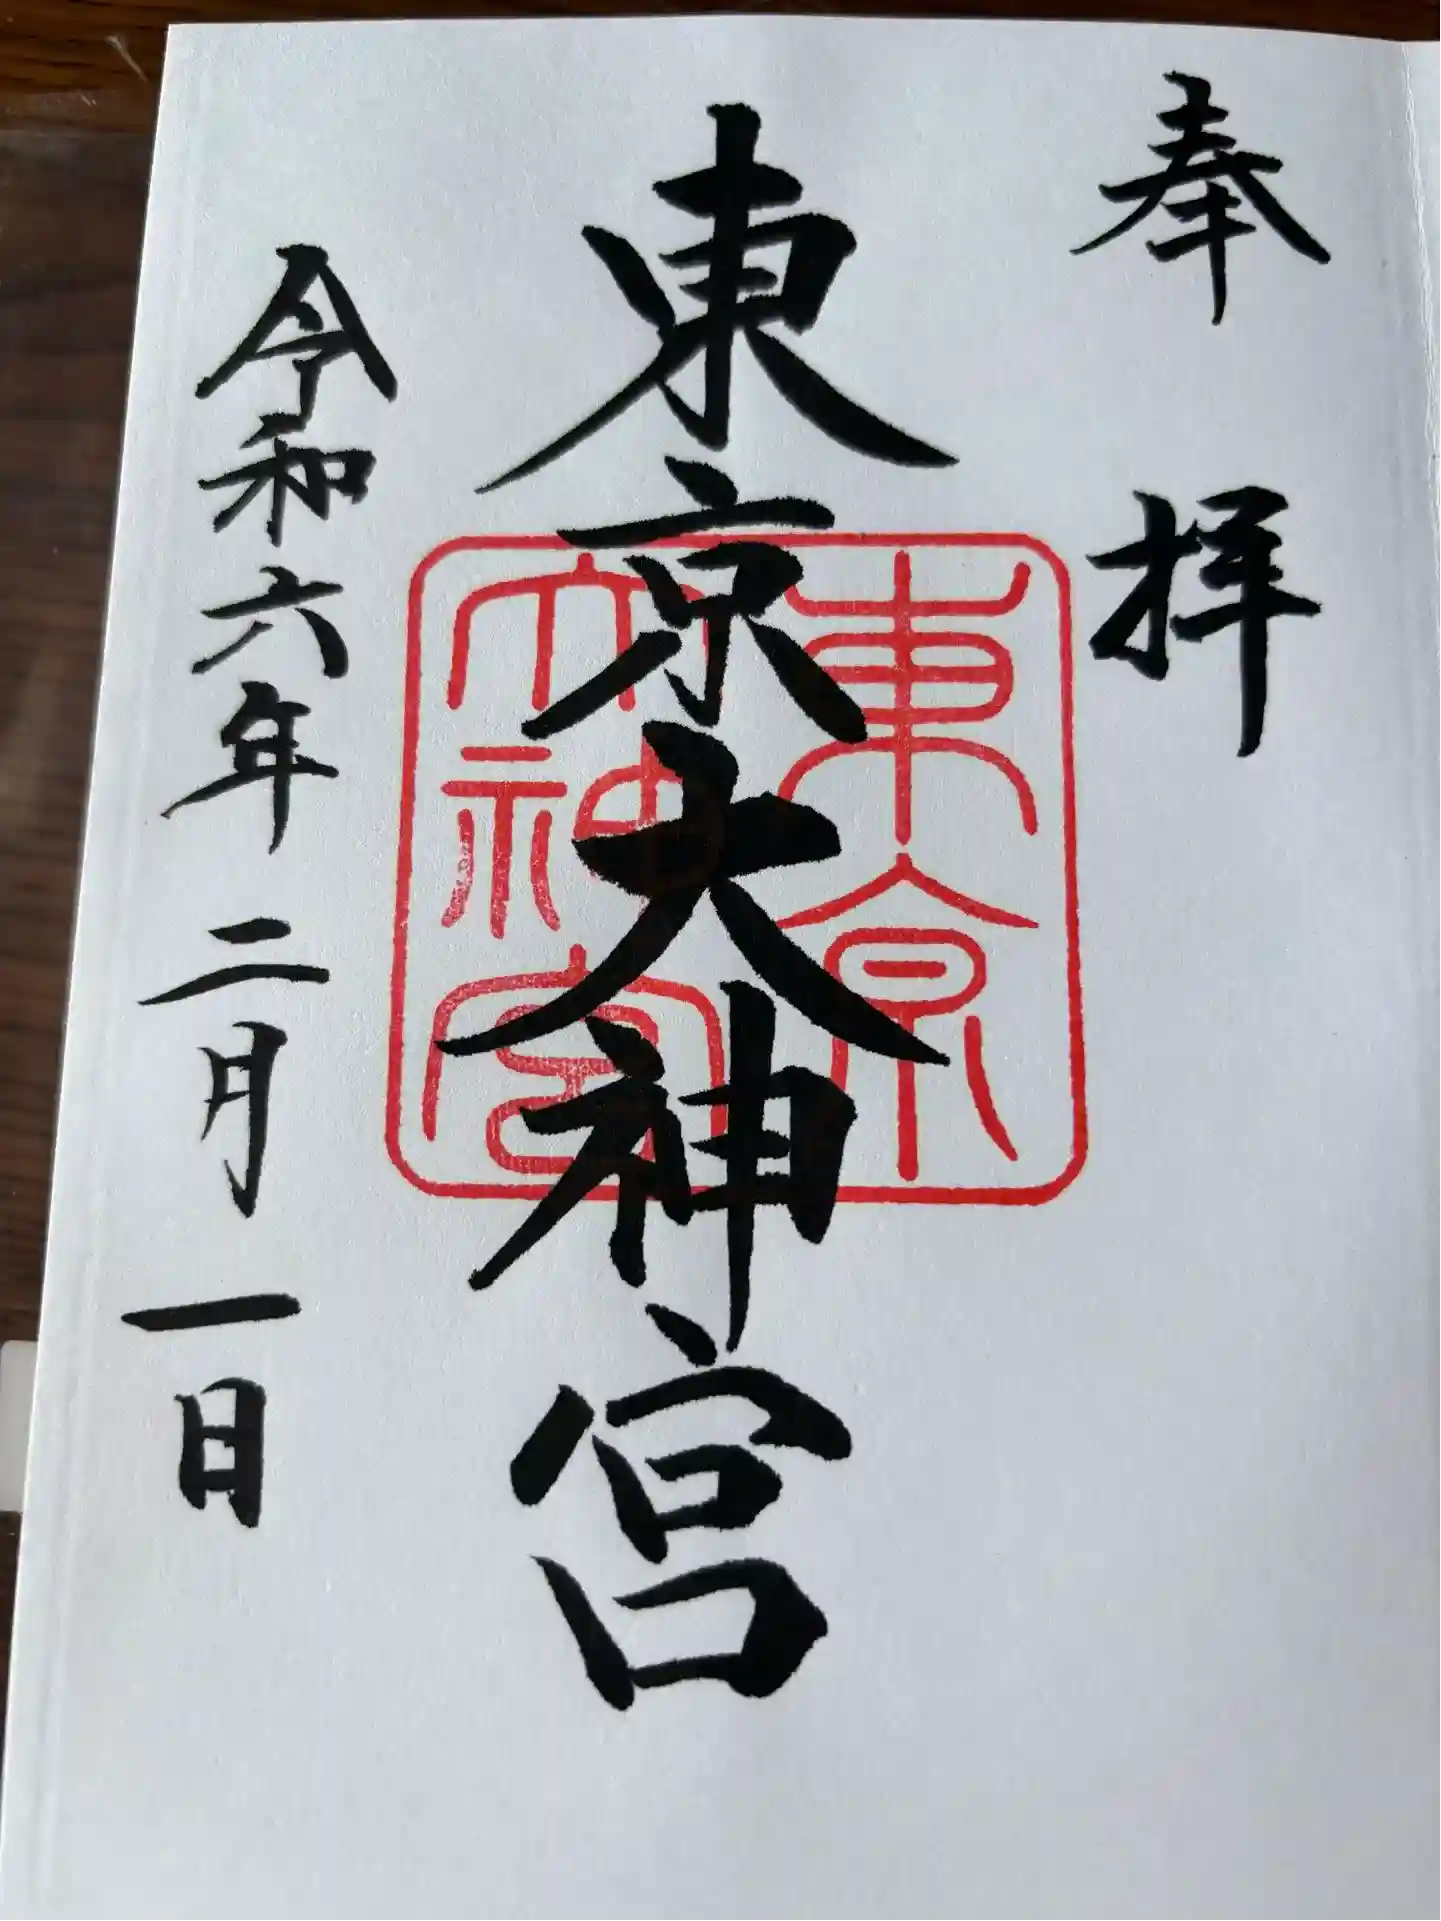 奉拝
東京大神宮
東京
大神宮
令和六年二月一日